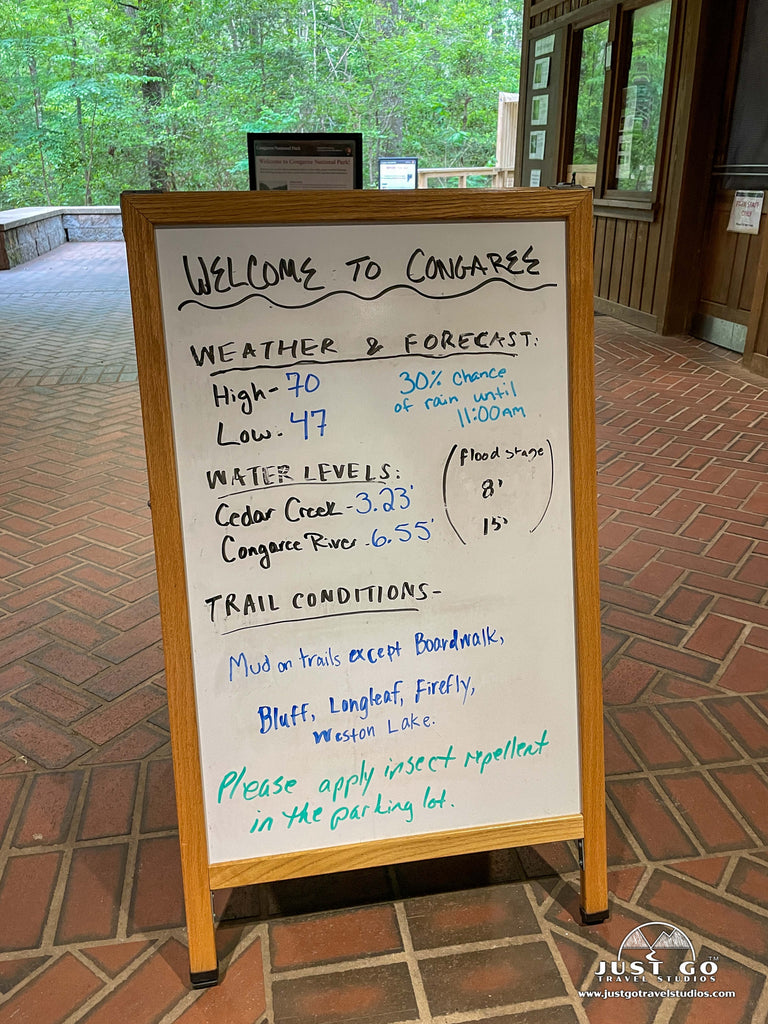 Congaree National Park
Welcome to Congaree National Park!
WELCOME TO CONGAREE
WEATHER & FORECAST:
High - 70
Low - 47
30% chance
of rain until
11:00am
WATER LEVELS:
(flood stage)
Cedar Creek - 3.23'
8'
Congaree River - 6.55'
15'
TRAIL CONDITIONS -
Mud on trails except Boardwalk,
Bluff, Longleaf, Firefly,
Weston Lake.
Please apply insect repellent
in the parking lot.
JUST GO™
TRAVEL STUDIOS
www.justgotravelstudios.com